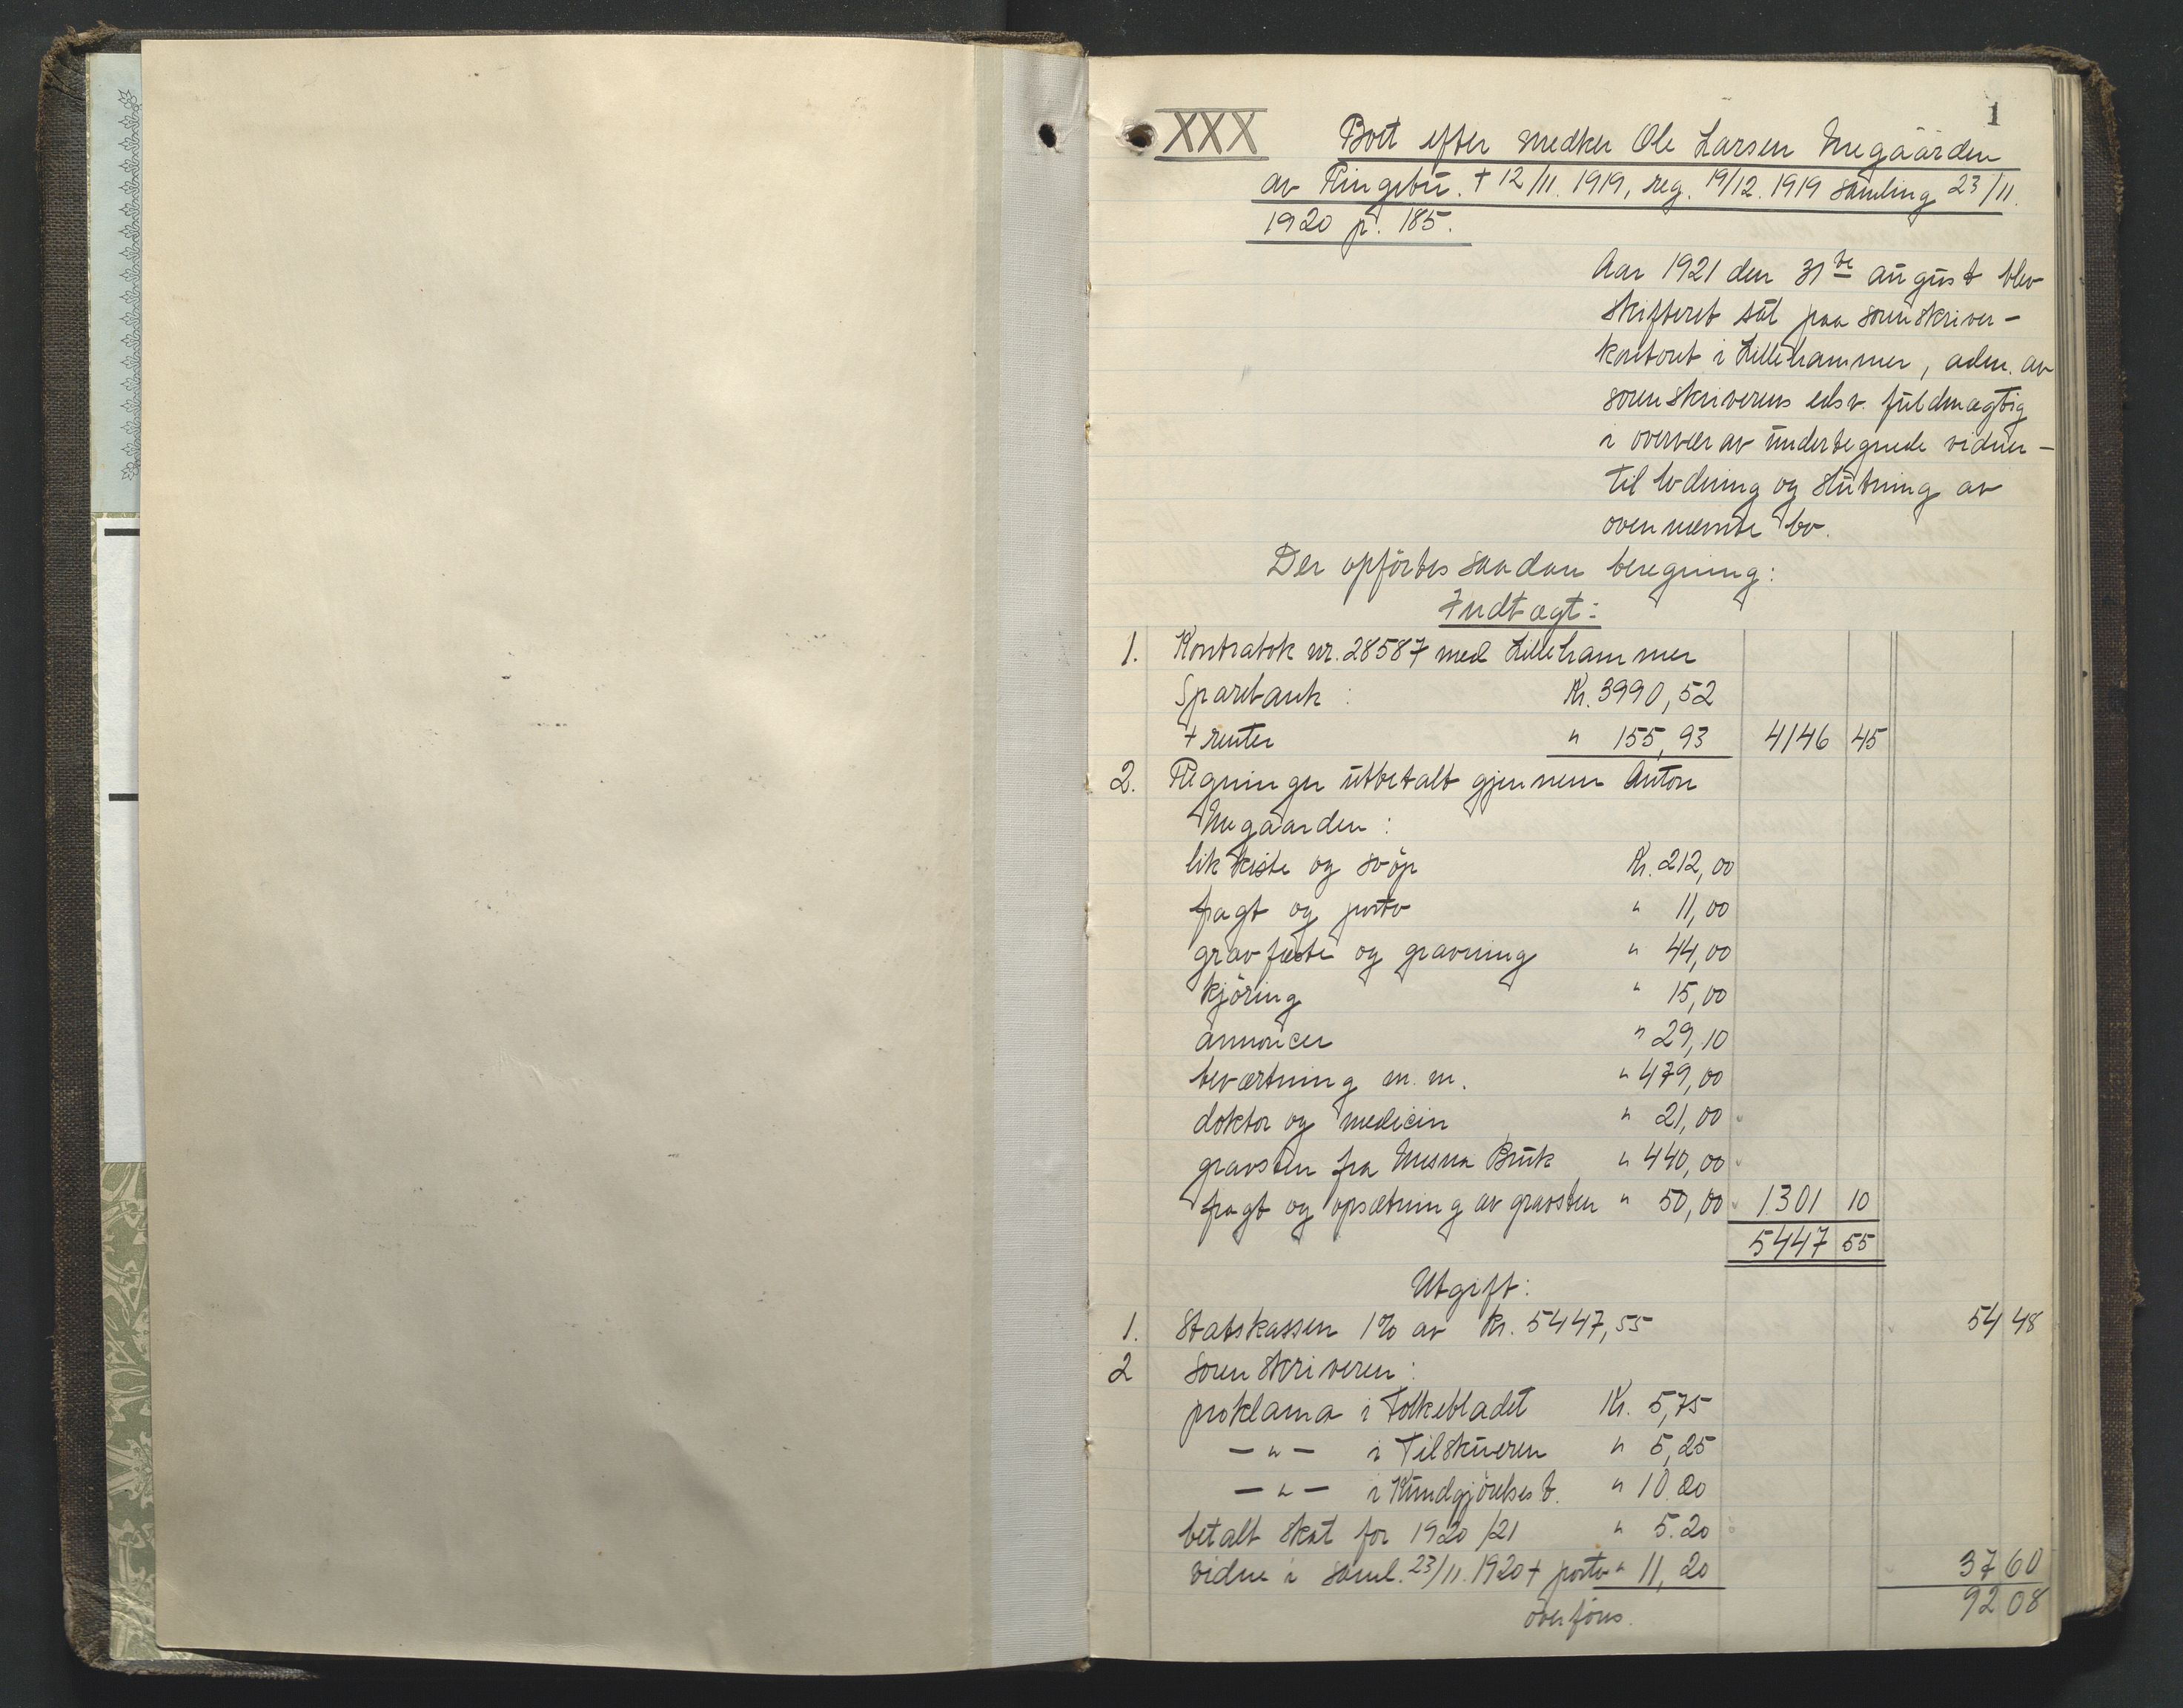 1
XXX Boet efter snedker Ole Larsen Megaarden
av Ringebu. + 12/11. 1919, reg. 19/12. 1919 samling 23/11.
1920 p. 185.
Aar 1921 den 31te august blev
skifteret sat paa sorenskriver-
kontoret i Lillehammer, adm. av
sorenskriverens edsv. fuldmægtig
i overvær av undertegnede vidner -
til lodning og slutning av
ovennævnte bo.
Der opførtes saadan beregning:
Indtægt:
1. Kontrabok nr. 28587 med Lillehammer
Sparebank : Kr. 3990,52
+ renter " 155,93 4146 45
2. Regninger utbetalt gjennem Anton
Megaarden :
likkiste og svøp Kr. 212,00
fragt og porto " 11,00
gravfæste og gravning " 44,00
kjøring " 15,00
annoncer " 29,10
beværtning m. m. " 479,00
doktor og medicin " 21,00
gravsten fra Mesna Bruk " 440,00
fragt og opsætning av gravsten " 50,00 1301 10
5447 55
Utgift:
1. Statskassen 1% av kr. 5447,55 54 48
2 Sorenskriveren :
proklama i Folkebladet Kr. 5,75
— " — i Tilskueren " 5,25
— " — i Kundgjørelsest. " 10.20
betalt skat for 1920/21 " 5.20
vidne i saml. 23/11. 1920 + porto " 11,20 37 60
overføres. 92 08